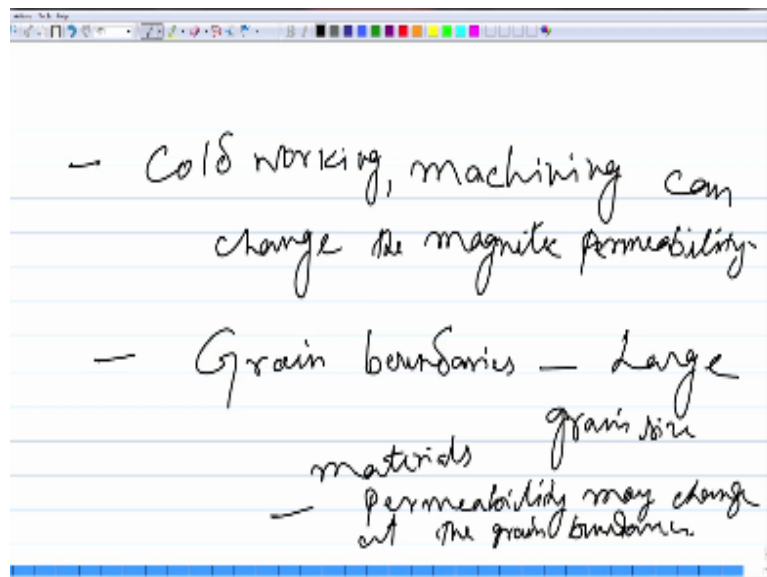 - Cold working, machining can
change the magnetic permeability.
- Grain boundaries - Large
grain size
materials
- Permeability may change
at the grain boundaries.